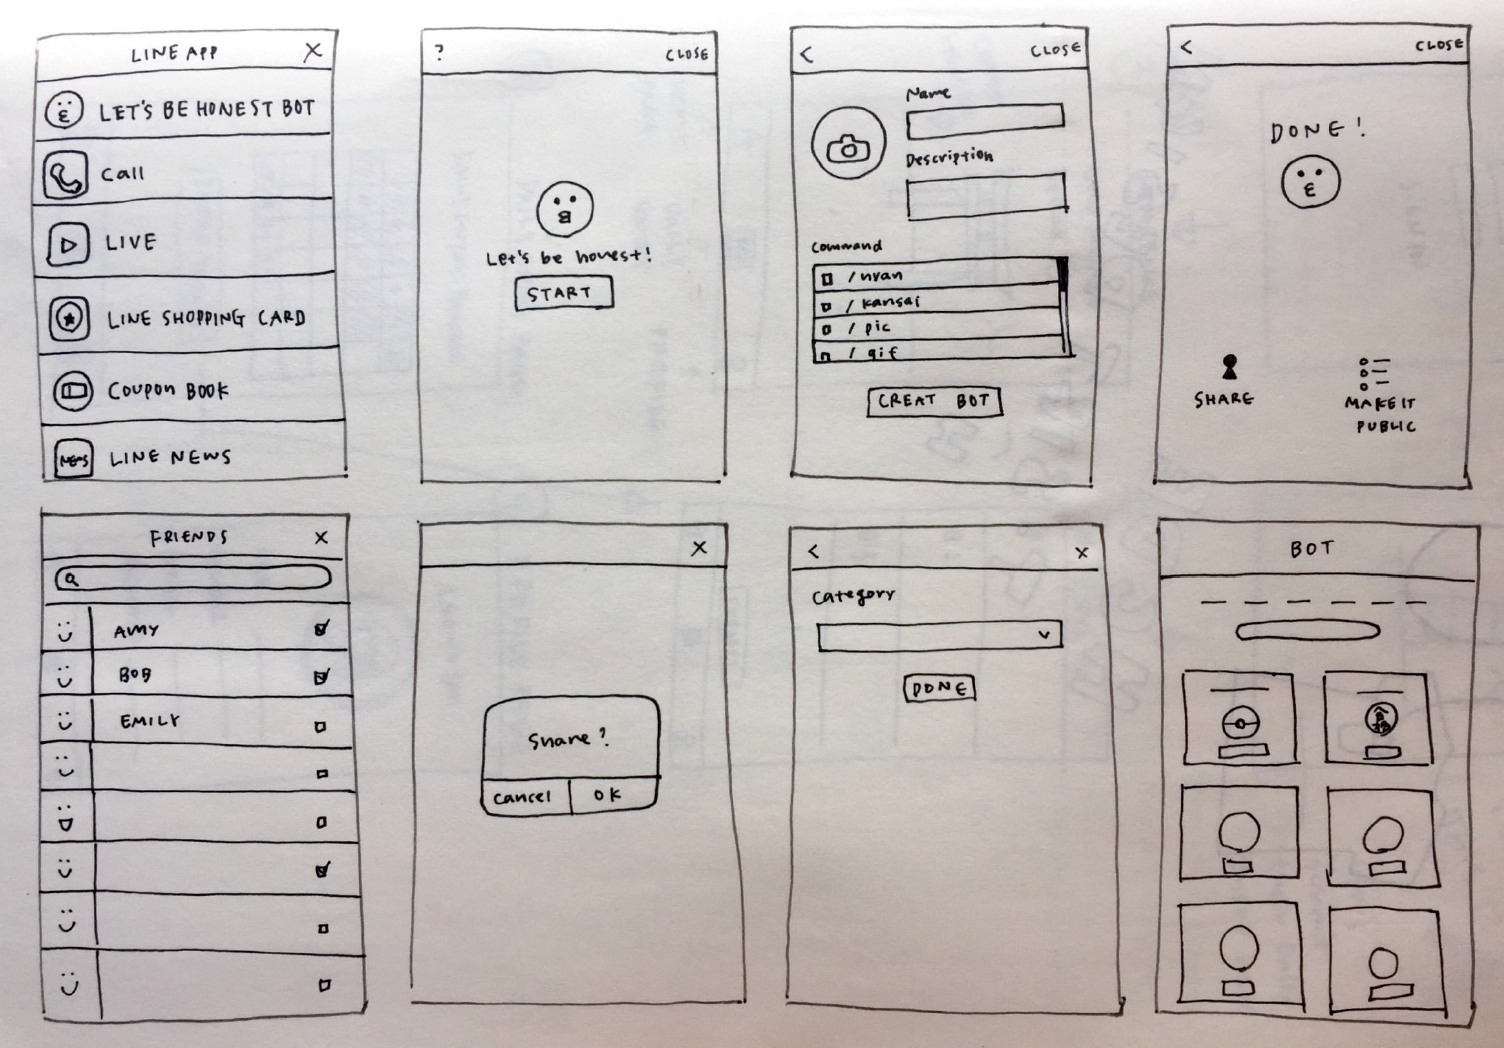 LINE APP X
LET'S BE HONEST BOT
Call
LIVE
LINE SHOPPING CARD
COUPON BOOK
NEWS LINE NEWS
? CLOSE
Let's be honest!
START
< CLOSE
Name
Description
Command
/ nyan
/ kansai
/ pic
/ gif
CREAT BOT
< CLOSE
DONE!
SHARE
MAKE IT
PUBLIC
FRIENDS X
AMY
BOB
EMILY
X
Share?
Cancel OK
< X
Category
DONE
BOT